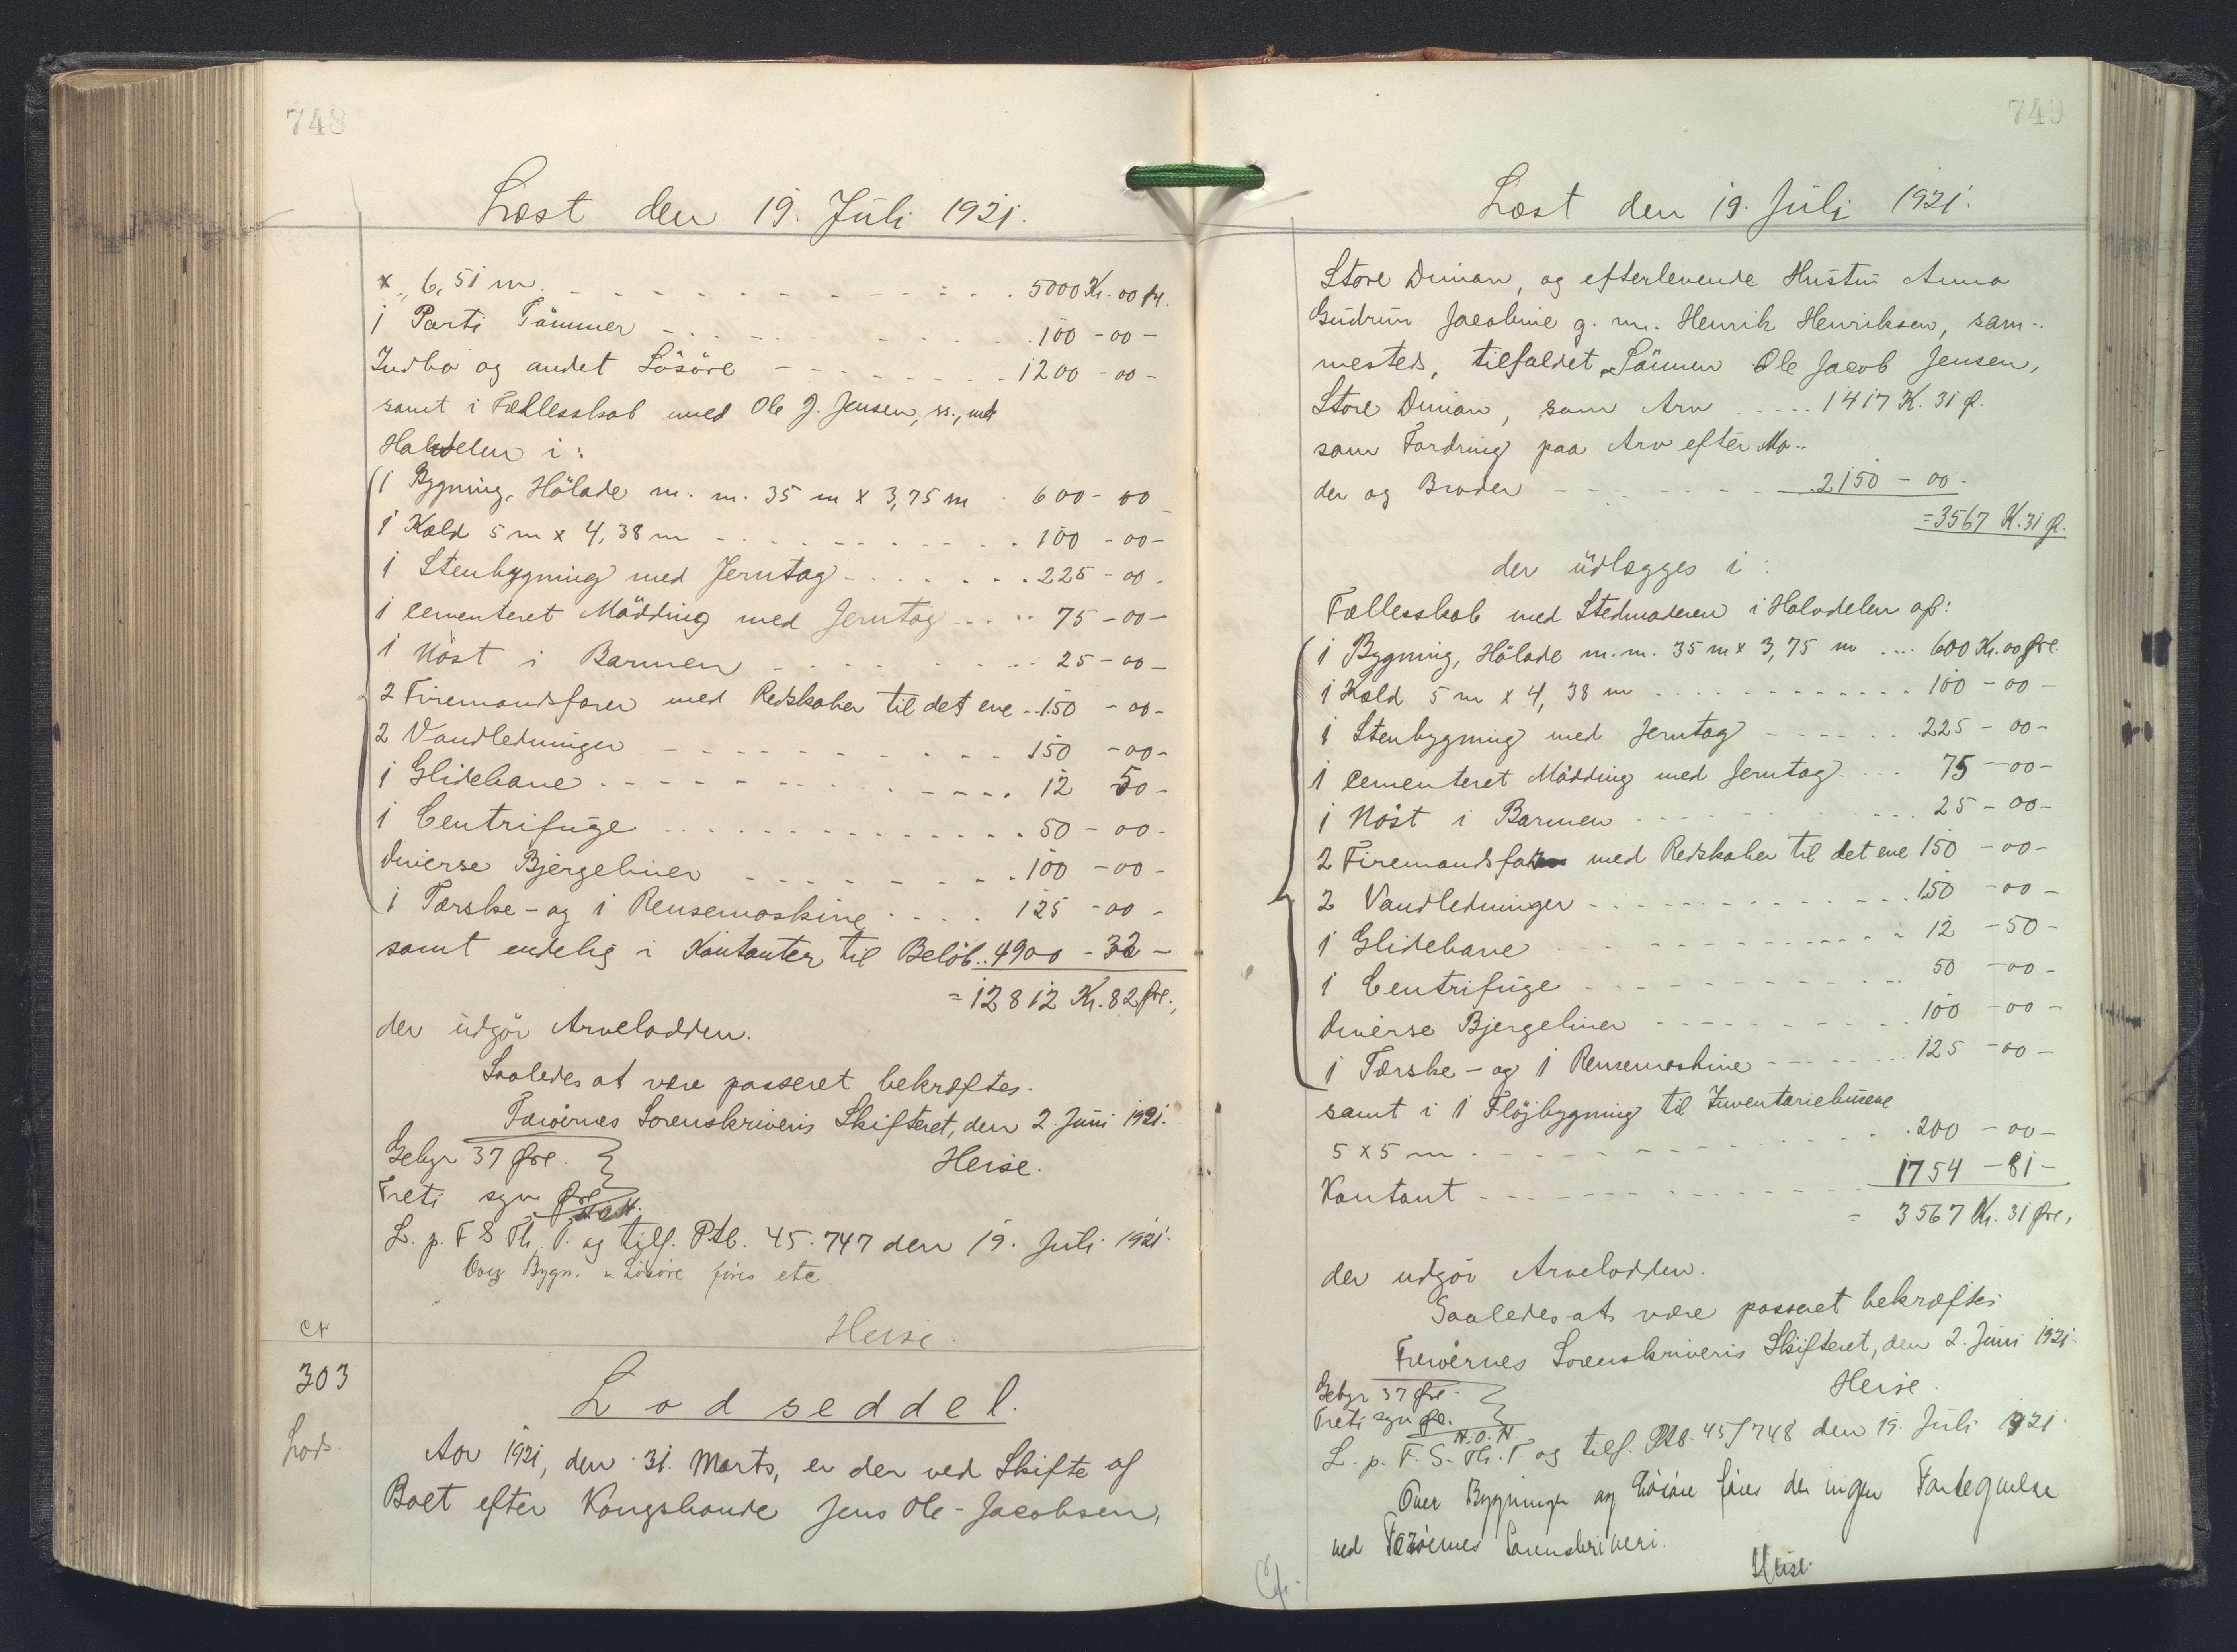 748
Læst den 19. Juli 1921.
x „ 6,51 m. 5000 Kr. 00 Ør.
1 Parti Tømmer 100 - 00 -
Indbo og andet Løsøre 1200 - 00 -
samt i Fællesskab med Ole J. Jensen, ss., med
Halvdelen i:
1 Bygning, Hølade m. m. 35 m x 3,75 m 600 - 00
1 Kold 5 m x 4,38 m 100 - 00 -
1 Stenbygning med Jerntag 225 - 00 -
1 cementeret Mødding med Jerntag 75 - 00 -
1 Nøst i Barmen 25 - 00 -
2 Firemandsfarer med Redskaber til det ene 150 - 00 -
2 Vandledninger 150 - 00 -
1 Glidebane 12 50 -
1 Centrifuge 50 - 00 -
diverse Bjergeliner 100 - 00 -
1 Tærske - og 1 Rensemaskine 125 - 00 -
samt endelig i Kontanter til Beløb 4900 - 32 -
= 12812 Kr. 82 Øre.,
der udgør Arvelodden.
Saaledes at være passeret bekræftes.
Færøernes Sorenskriveris Skifteret, den 2. Juni 1921.
Gebyr 37 Øre. Heise.
Treti syv Øre
L. p. F S Th. T. og tilf. Ptb. 45. 747 den 19. Juli 1921.
Over Bygn. & Løsøre føres etc.
Heise.
303
Lods.
Lodseddel.
Aar 1921, den 31. Marts, er der ved Skifte af
Boet efter Kongsbonde Jens Ole-Jacobsen,
749
Læst den 19. Juli 1921.
Store Dimon, og efterlevende Hustru Anna
Gudrun Jacobine g. m. Henrik Henriksen, sam-
mesteds, tilfaldet Sønnen Ole Jacob Jensen,
Store Dimon, som Arv 1417 K. 31 Ø.
som Fordring paa Arv efter Mo-
der og Broder 2150 - 00 -
= 3567 K. 31 Ø.
der udlægges i:
Fællesskab med Stedmoderen i Halvdelen af:
1 Bygning, Hølade m. m. 35 m x 3,75 m 600 Kr. 00 Øre.
1 Kold 5 m x 4,38 m 100 - 00 -
1 Stenbygning med Jerntag 225 - 00 -
1 cementeret Mødding med Jerntag 75 - 00 -
1 Nøst i Barmen 25 - 00 -
2 Firemandsfar med Redskaber til det ene 150 - 00 -
2 Vandledninger 150 - 00 -
1 Glidebane 12 - 50 -
1 Centrifuge 50 - 00 -
diverse Bjergeliner 100 - 00 -
1 Tærske - og 1 Rensemaskine 125 - 00 -
samt i 1 Fløjbygning til Inventariehusene
5 x 5 m 200 - 00 -
Kontant 1754 - 81 -
= 3567 Kr. 31 Øre,
der udgør Arvelodden.
Saaledes at være passeret bekræftes
Færøernes Sorenskriveris Skifteret, den 2. Juni 1921.
Gebyr 37 Øre. Heise.
Treti syv Øre.
N. O. N.
L. p. F. S. Th. T. og tilf. Ptb. 45/748 den 19. Juli 1921.
Over Bygninger og Løsøre føres der ingen Fortegnelse
ved Færøernes Sorenskriveri.
Heise.